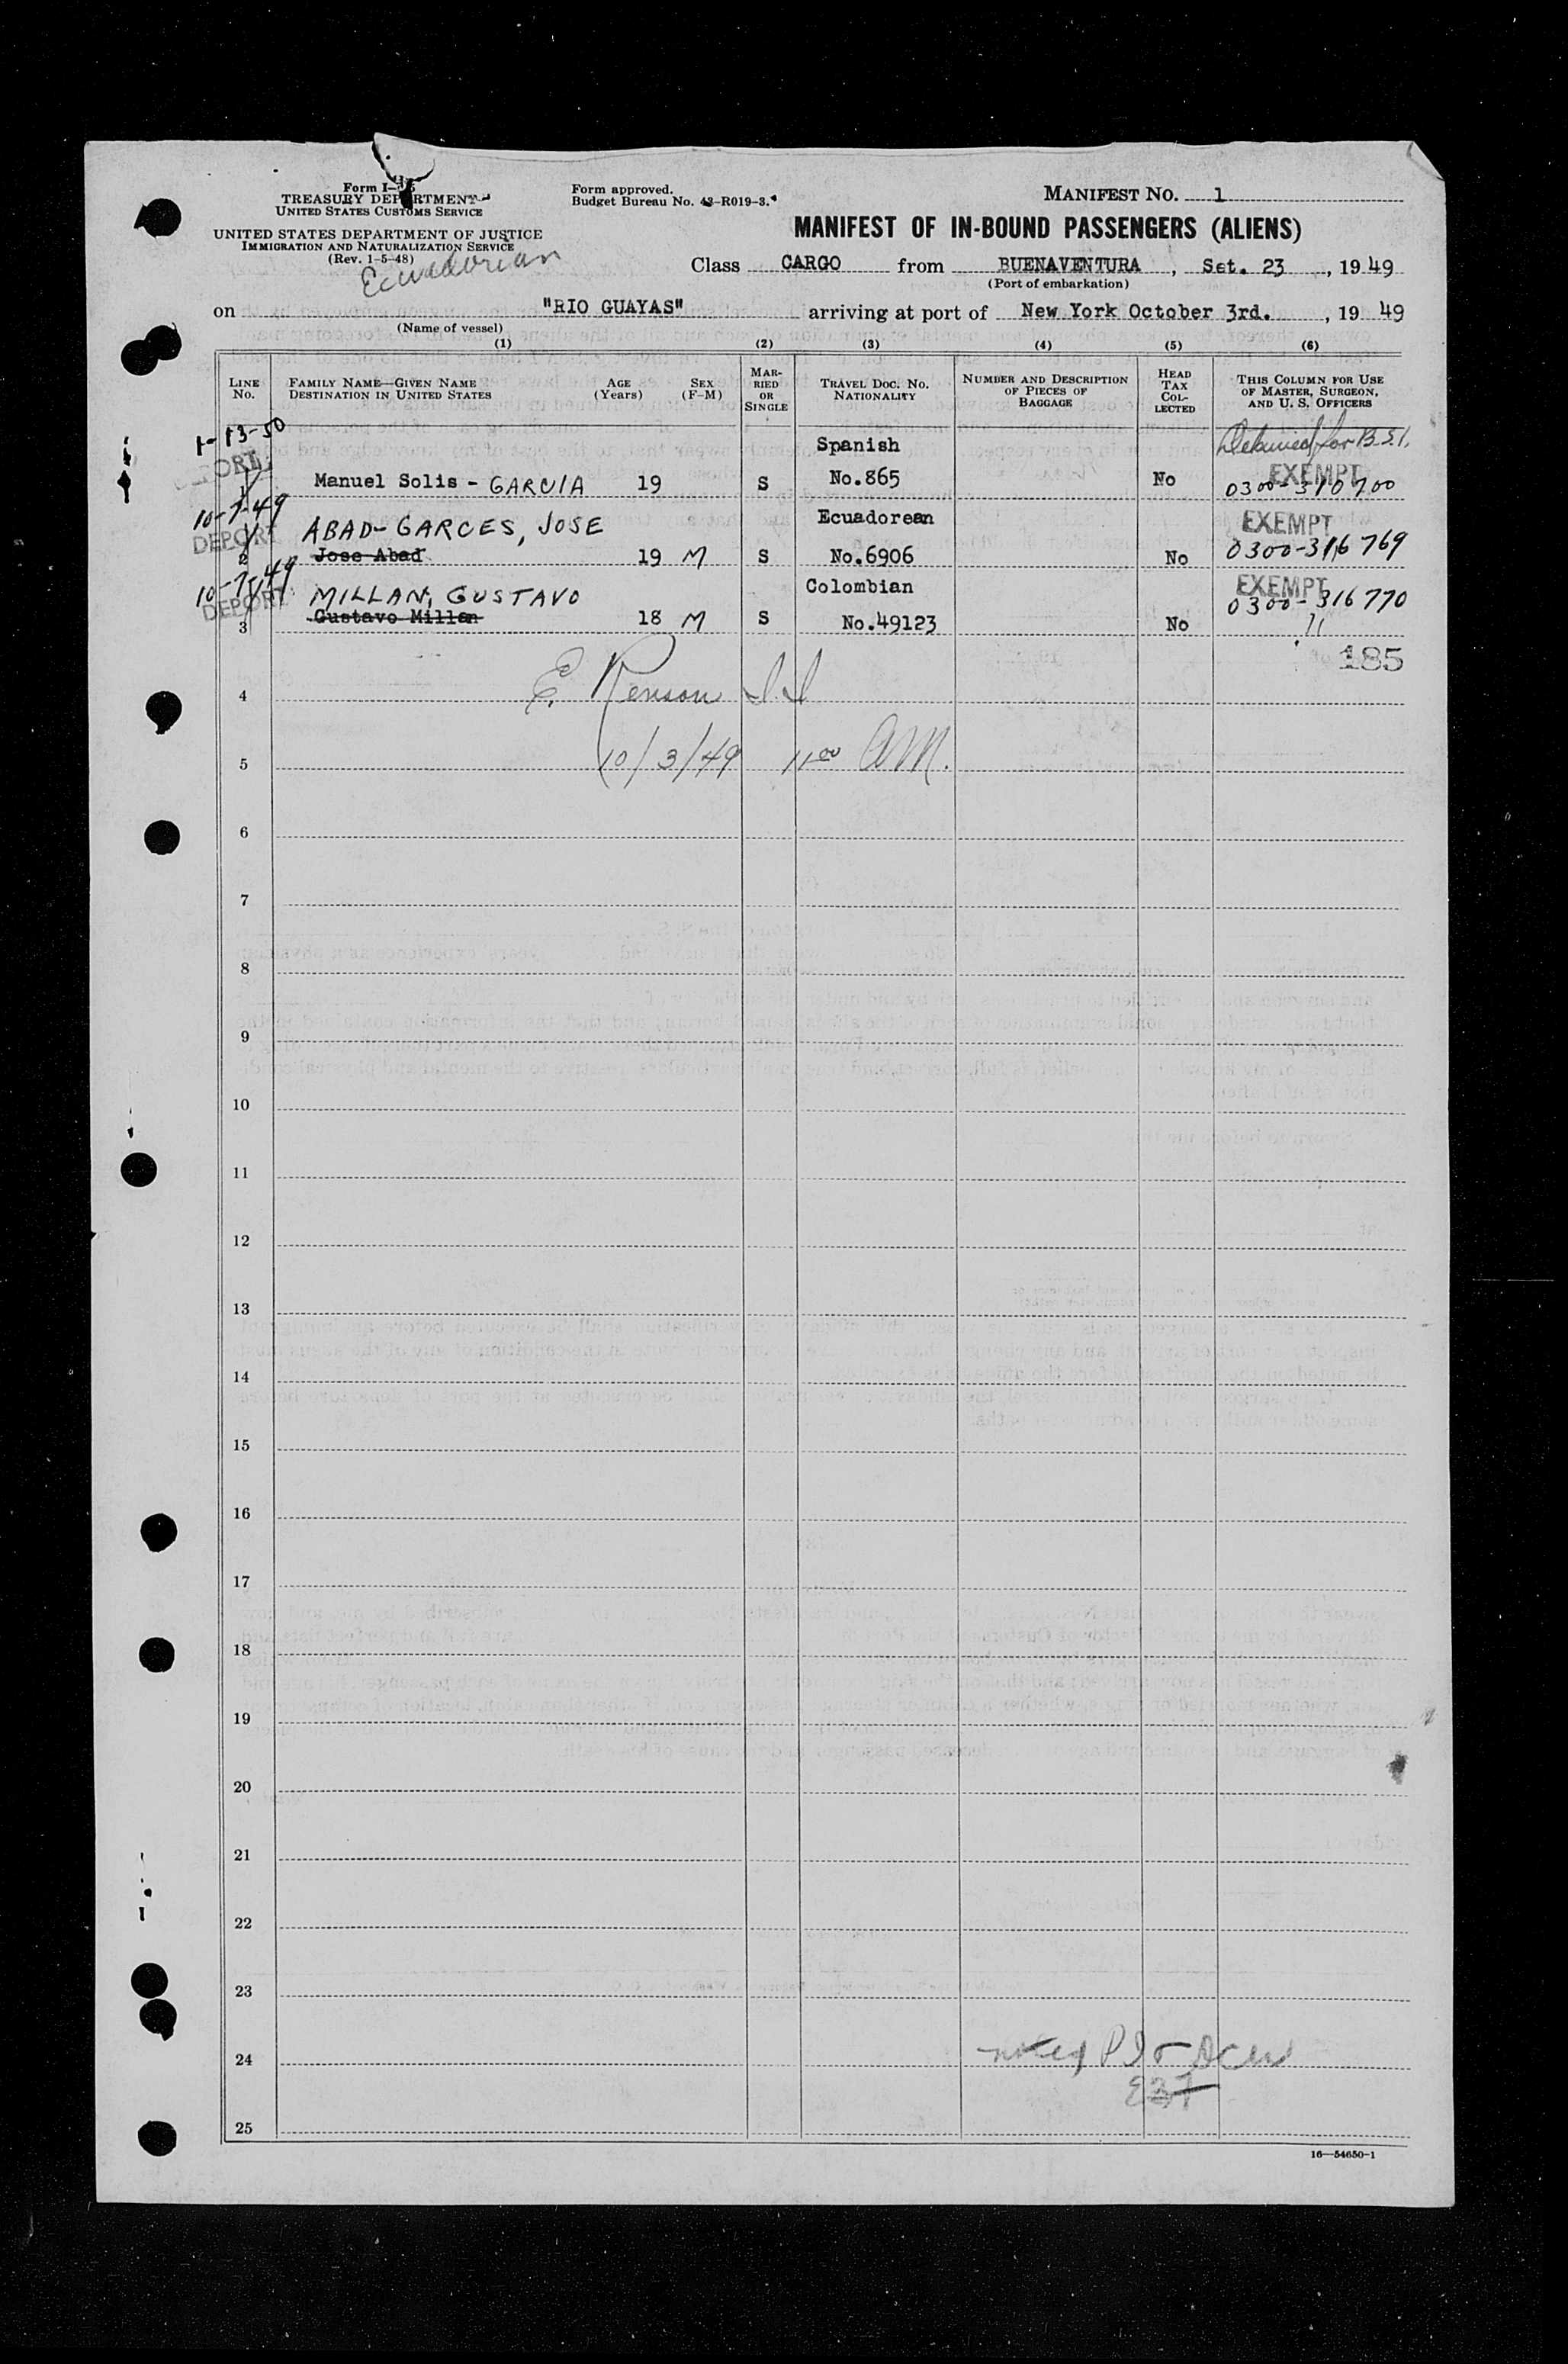 Form I-
TREASURY DEPARTMENT
UNITED STATES CUSTOMS SERVICE
UNITED STATES DEPARTMENT OF JUSTICE
IMMIGRATION AND NATURALIZATION SERVICE
(Rev. 1-5-48)
Ecuadorian
Form approved.
Budget Bureau No. 43-R019-3.
MANIFEST NO. 1
MANIFEST OF IN-BOUND PASSENGERS (ALIENS)
Class CARGO from BUENAVENTURA, Set. 23, 1949
(Port of embarkation)
on "RIO GUAYAS" arriving at port of New York October 3rd., 19 49
(Name of vessel)
(1) (2) (3) (4) (5) (6)
LINE No. FAMILY NAME—GIVEN NAME DESTINATION IN UNITED STATES AGE (Years) SEX (F-M) MARRIED OR SINGLE TRAVEL DOC. NO. NATIONALITY NUMBER AND DESCRIPTION OF PIECES OF BAGGAGE HEAD TAX COLLECTED THIS COLUMN FOR USE OF MASTER, SURGEON, AND U. S. OFFICERS
1-13-50 Spanish Detained for B.S.I.
PORT EXEMPT
1 Manuel Solis - GARCIA 19 S No.865 No 0300-310700
10-7-49 ABAD-GARCES, JOSE Ecuadorean EXEMPT
DEPORT
2 Jose Abad 19 M S No.6906 No 0300-316769
10-7-49 MILLAN, GUSTAVO Colombian EXEMPT
DEPORT 0300-316770
3 Gustavo Millan 18 M S No.49123 No 11
185
4 E. Renson I.I
5 10/3/49 1100 AM.
6
7
8
9
10
11
12
13
14
15
16
17
18
19
20
21
22
23
24
25
16—54650-1